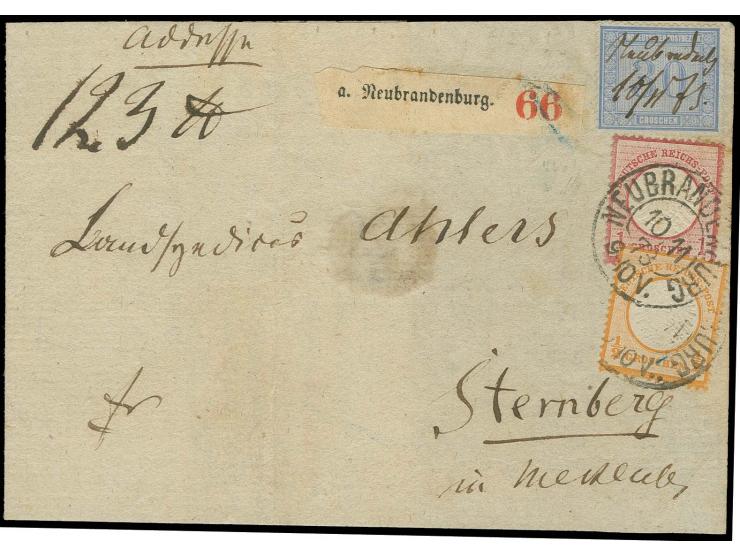 Addresse
123 ℔
a. Neubrandenburg. 66
Neubrandenb
10/11 73.
30
GROSCHEN
DEUTSCHE REICHS-POST
1
GROSCHEN
NEUBRANDENBURG
10 11
73
9-10 V.
1/2 GROSCHEN
Landsyndicus Ahlers
fr
Sternberg
in Mecklenb